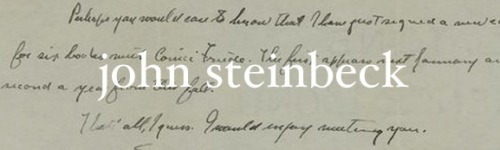 Perhaps you would care to know that I have just signed a new co
for six books with Covici Friede. The first appears next January and
second a year from this fall.
john steinbeck
That's all, I guess. I would enjoy meeting you.